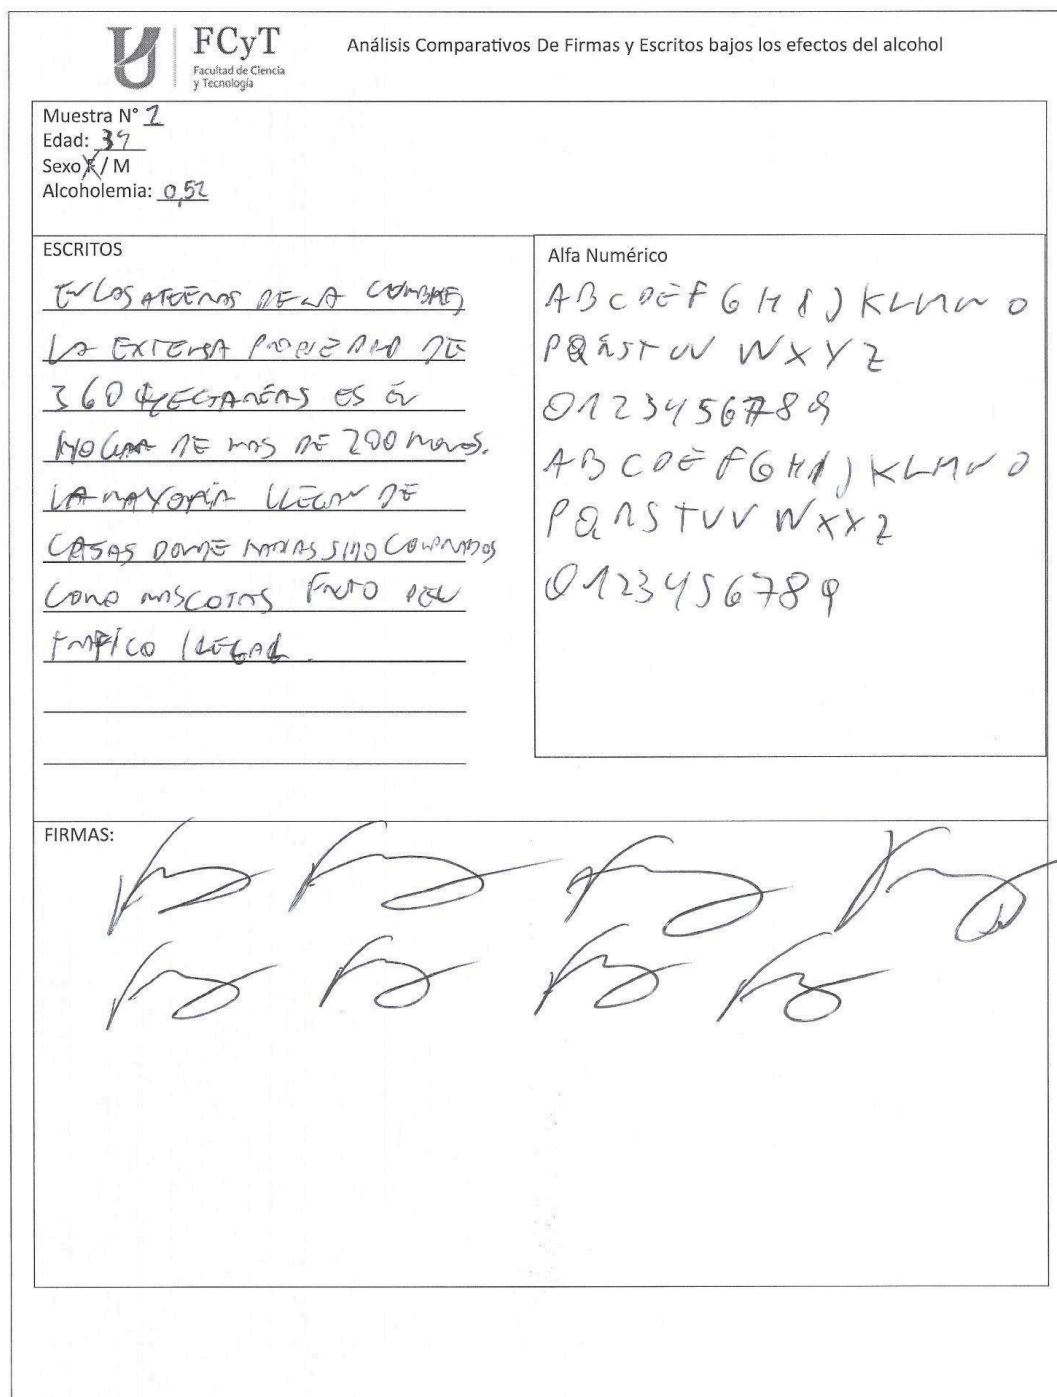 FCyT
Facultad de Ciencia
y Tecnología
Análisis Comparativos De Firmas y Escritos bajos los efectos del alcohol
Muestra N° 2
Edad: 34
Sexo F / M
Alcoholemia: 0,52
ESCRITOS
EN LOS DE LA
LA EXTENSA DE
360 HECTAREAS ES EL
HOGAR DE MAS DE 200 MONOS.
LA MAYORÍA LLEGAN DE
CASAS DONDE COMPRADOS
COMO MASCOTAS FRUTO DEL
TRAFICO ILEGAL.
Alfa Numérico
A B C D E F G H I J K L M N O
P Q R S T U V W X Y Z
0 1 2 3 4 5 6 7 8 9
A B C D E F G H I J K L M N O
P Q R S T U V W X Y Z
0 1 2 3 4 5 6 7 8 9
FIRMAS: